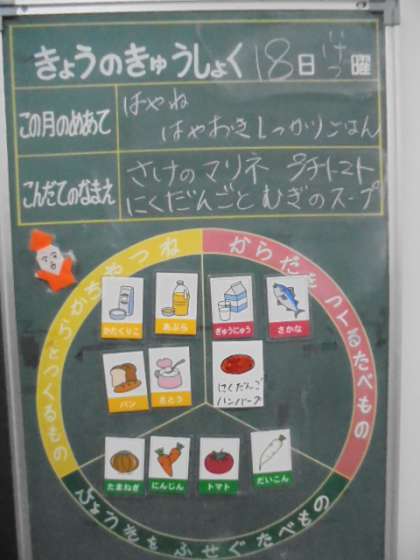 きょうのきゅうしょく 18日 げつ 曜
この月のめあて
はやね
はやおきしっかりごはん
こんだてのなまえ
さけのマリネ プチトマト
にくだんごとむぎのスープ
ちからやねつをつくるもの
からだをつくるたべもの
かたくりこ
あぶら
ぎゅうにゅう
さかな
パン
さとう
にくだんご
ハンバーグ
たまねぎ
にんじん
トマト
だいこん
びょうきをふせぐたべもの